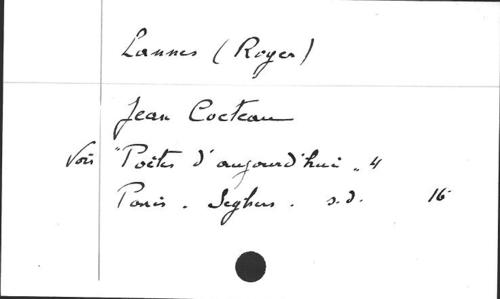 Lannes (Roger)
Jean Cocteau
Voir "Poètes d'aujourd'hui" 4
Paris. Seghers. s.d. 16